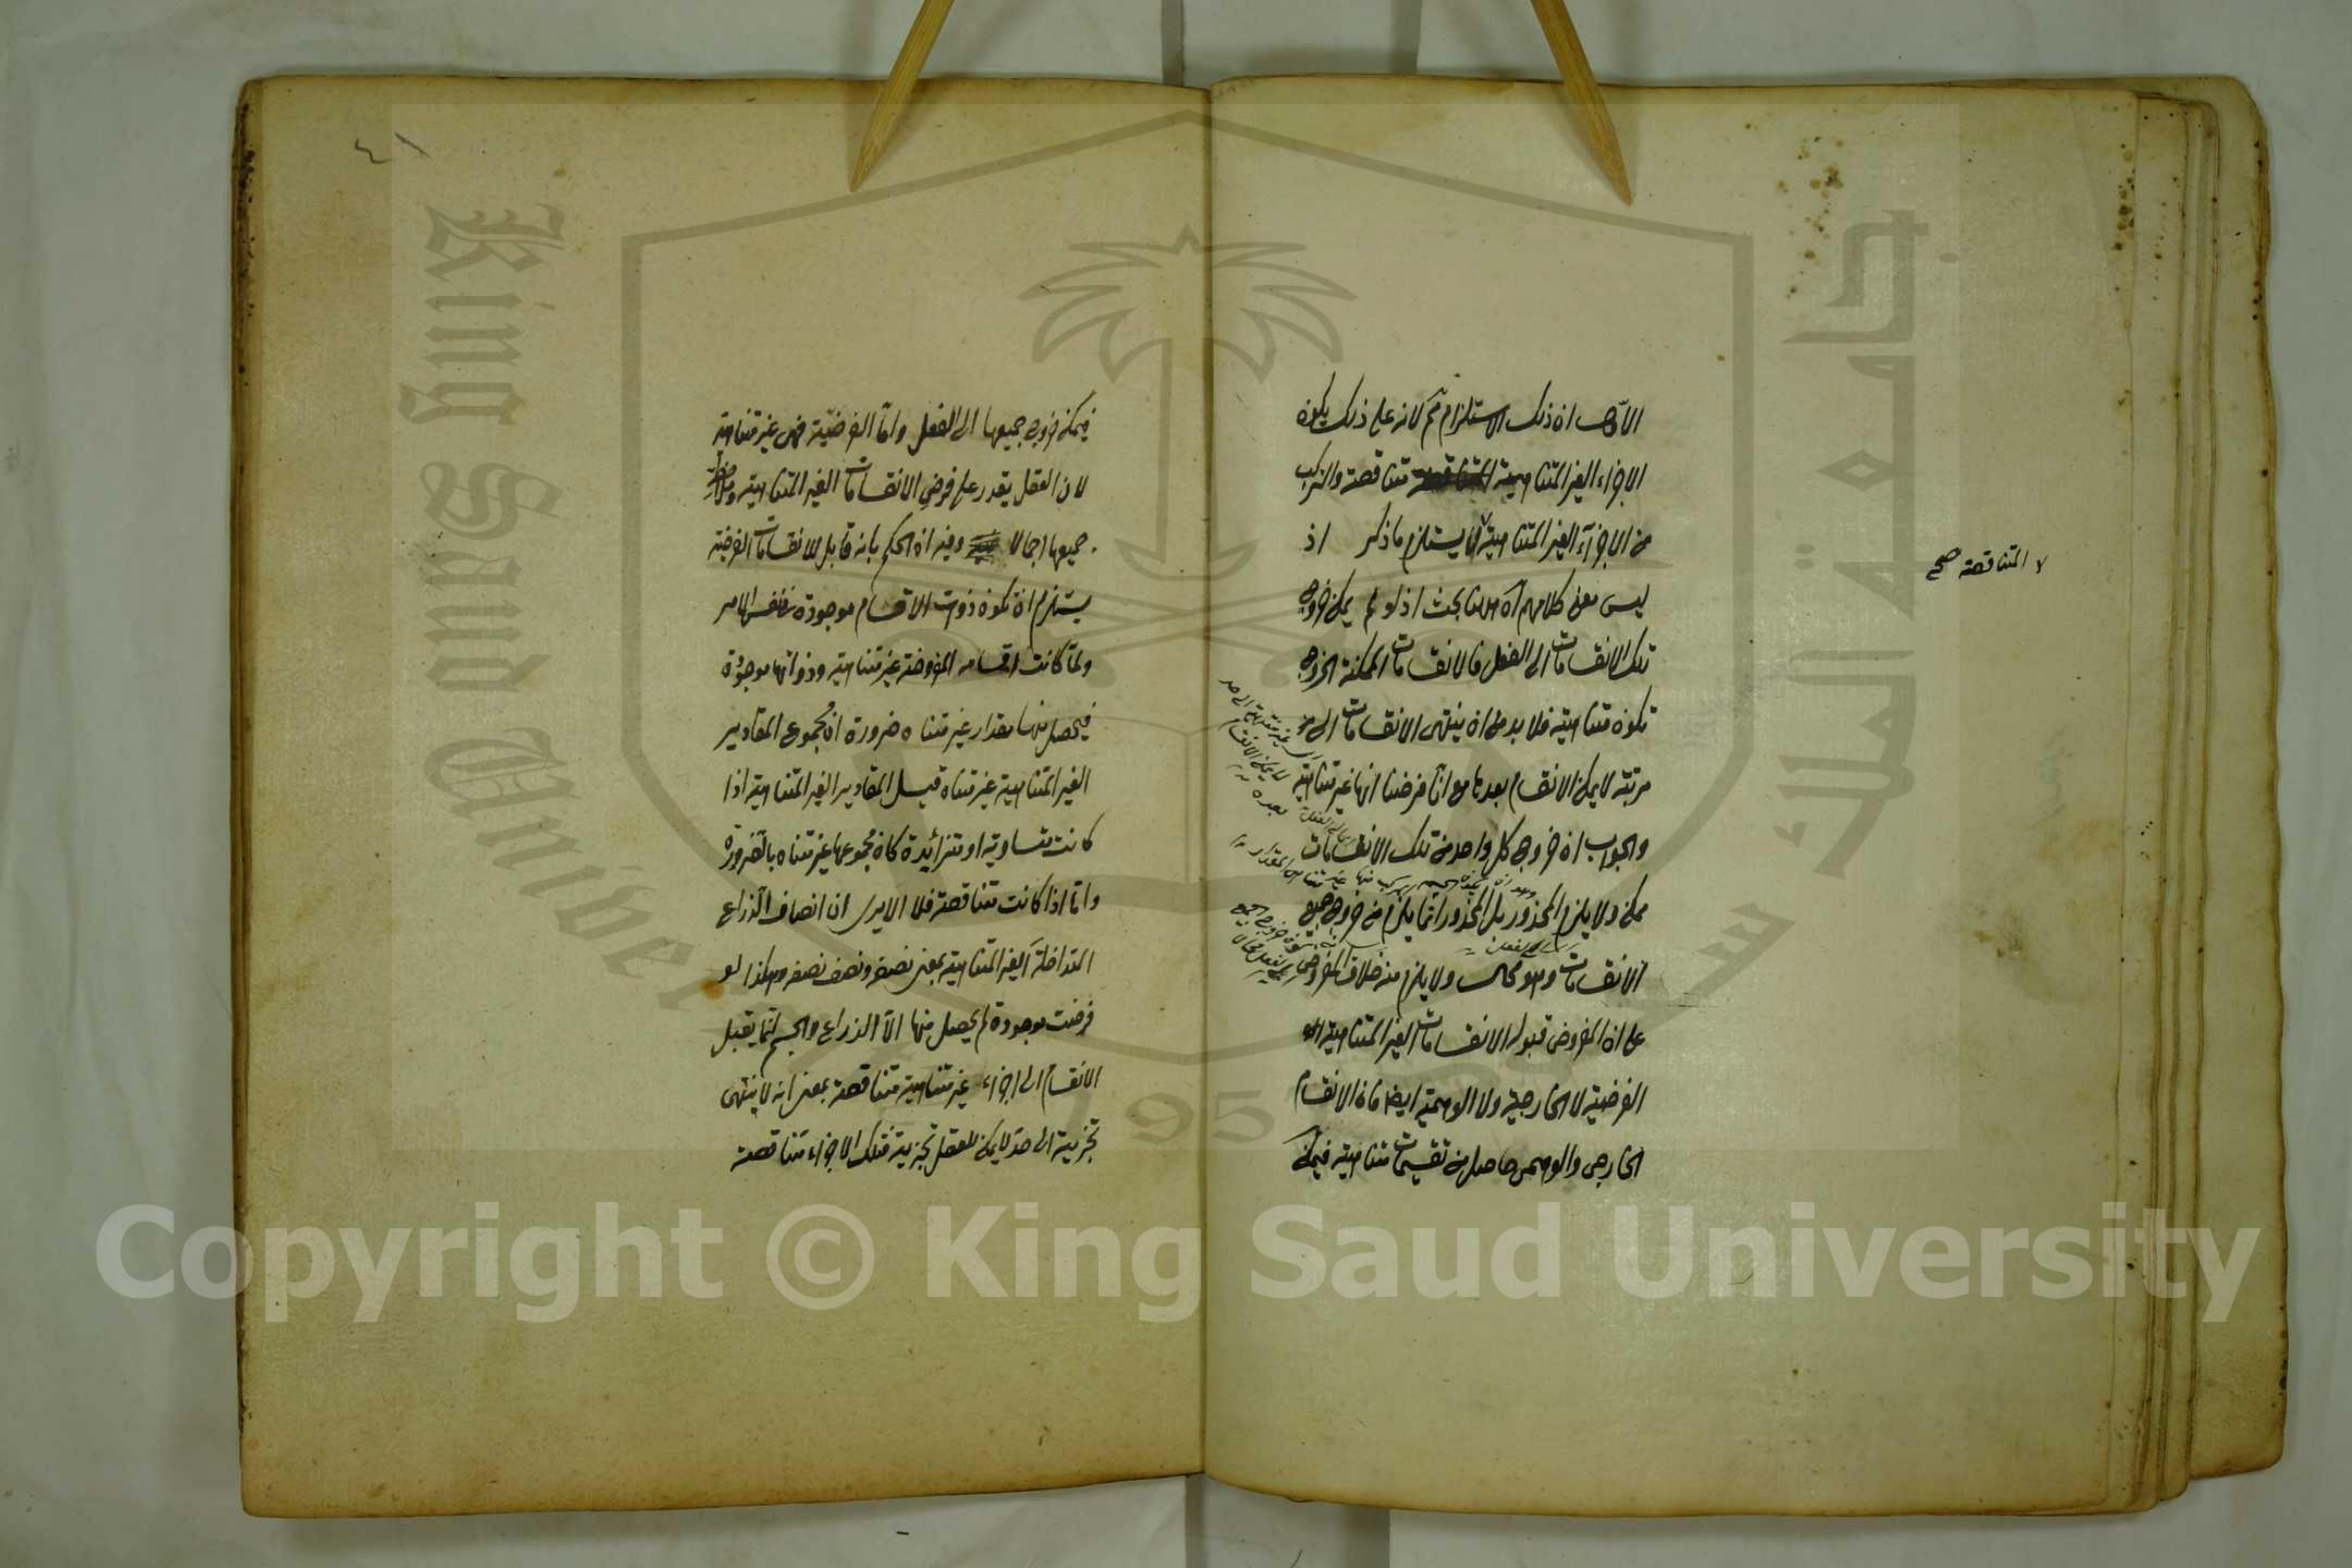 الا ان ذلك الاستلزام ثم لانه على ذلك يكون
الاجزاء الغير المتناهية متناقصة والتركب
من الاجزآء الغير المتناهية لا يستلزم ما ذكر اذ
لا المتناقصة صح
ليس معنى كلامهم آه ههنا بحث اذ لو لم يمكن خروج
تلك الانقسامات الى الفعل فالانقسامات الممكنة الخروج
تكون متناهية فلا بد من ان ينتهى الانقسامات الى
مرتبة لا يمكن الانقسام بعدها مع انا فرضنا انها غير متناهية
والجواب ان خروج كل واحد من تلك الانقسامات
ممكن ولا يلزم المحذور بل المحذور انما يلزم من خروج جميع
الانقسامات وهو محال ولا يلزم منه خلاف المفروض
على ان المفروض قبوله الانقسامات الغير المتناهية
الفرضية لا الخارجية ولا الوهمية ايضا فان الانقسام
الخارجى والوهمى حاصل من تقسيمات متناهية فيمكن
٤١
فيمكن خروج جميعها الى الفعل واما الفرضية فهى غير متناهية
لان العقل يقدر على فرض الانقسامات الغير المتناهية وملاحظة
جميعها اجمالا وفيه ان الحكم بانه قابل للانقسامات الفرضية
يستلزم ان تكون ذوات الاقسام موجودة فى نفس الامر
ولما كانت اقسامه المفروضة غير متناهية وذواتها موجودة
فيحصل منها مقدار غير متناه ضرورة ان مجموع المقادير
الغير المتناهية غير متناه قيل المقادير الغير المتناهية اذا
كانت متساوية او متزائدة كان مجموعها غير متناه بالضرورة
واما اذا كانت متناقصة فلا الا يرى ان انصاف الذراع
المتداخلة الغير المتناهية بمعنى نصفه ونصف نصفه وهكذا لو
فرضت موجودة لم يحصل منها الا الذراع والجسم انما يقبل
الانقسام الى اجزاء غير متناهية متناقصة بمعنى انه لا ينتهى
تجزيته الى حد لا يمكن للعقل تجزيته فتلك الاجزاء متناقصة
Copyright © King Saud University